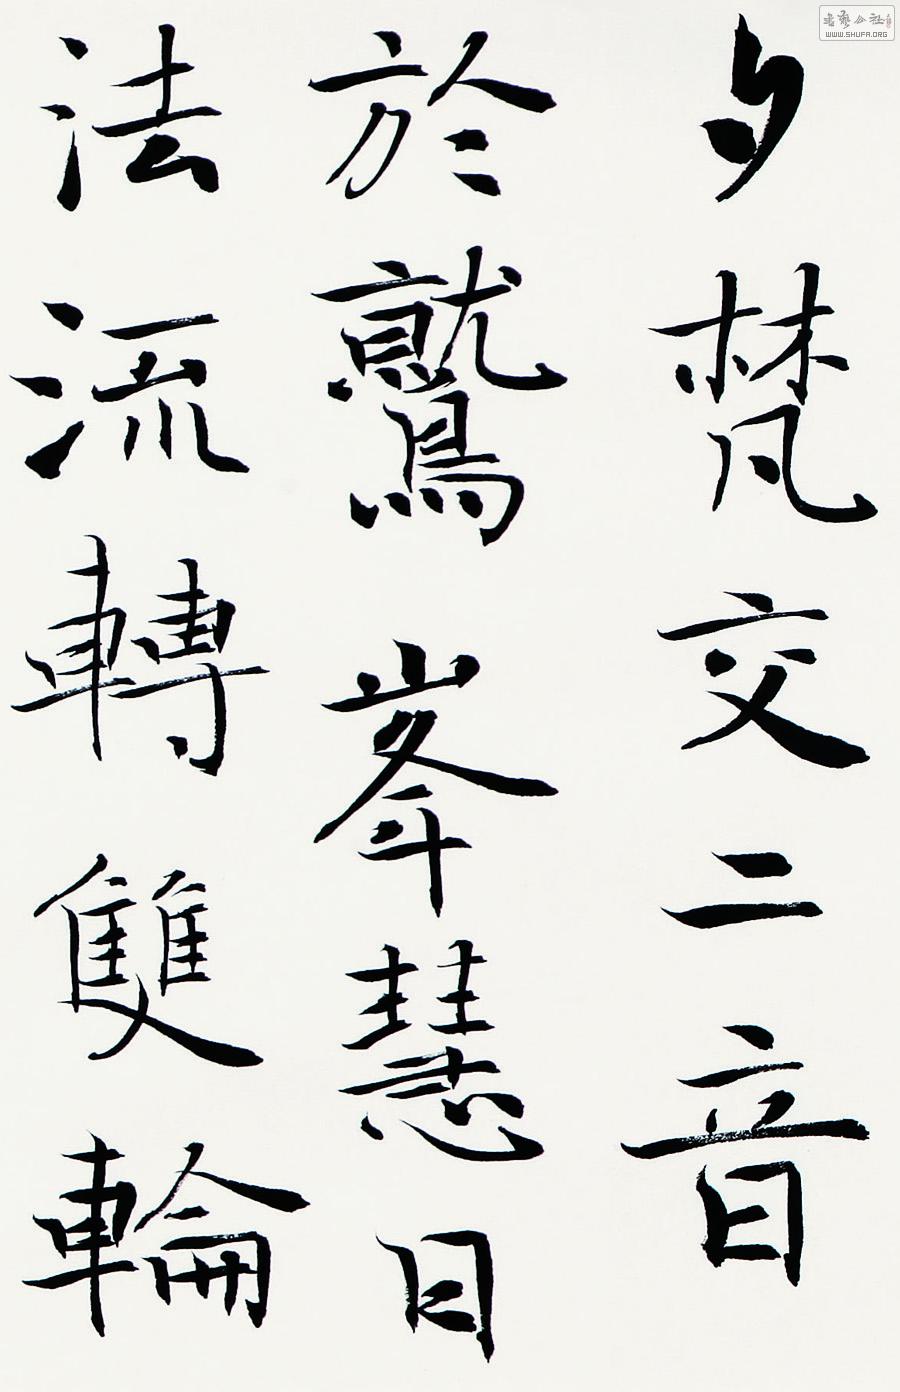 夕梵交二音
於鷲峯慧日
法流轉雙輪
書藝公社
WWW.SHUFA.ORG